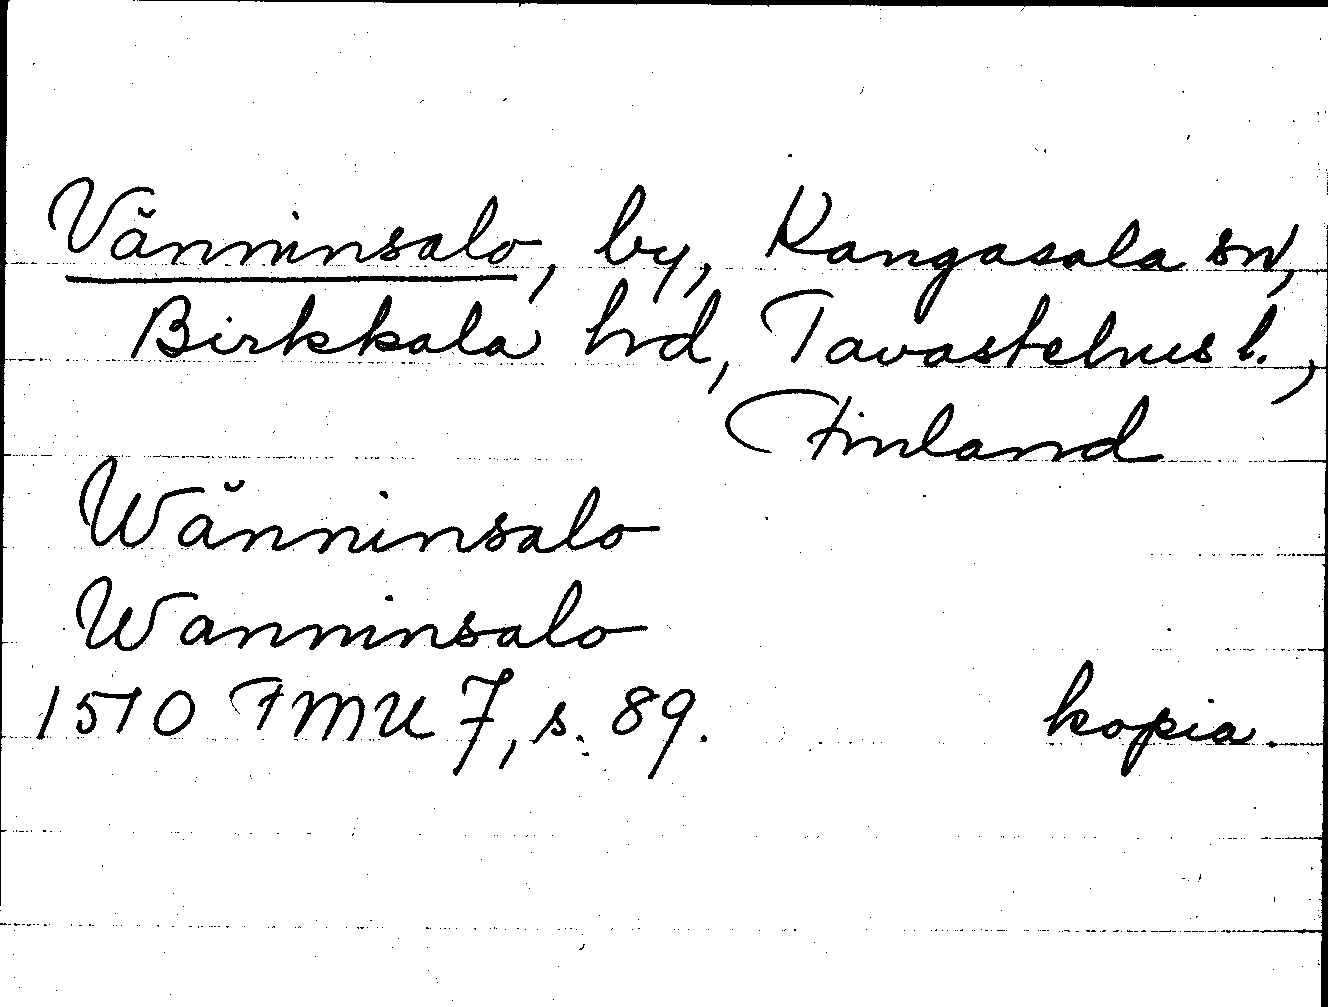 Vänninsalo, by, Kangasala sn,
Birkkala hd, Tavastehus l.,
Finland
Wänninsalo
Wanninsalo
1510 FMU 7, s. 89. kopia.